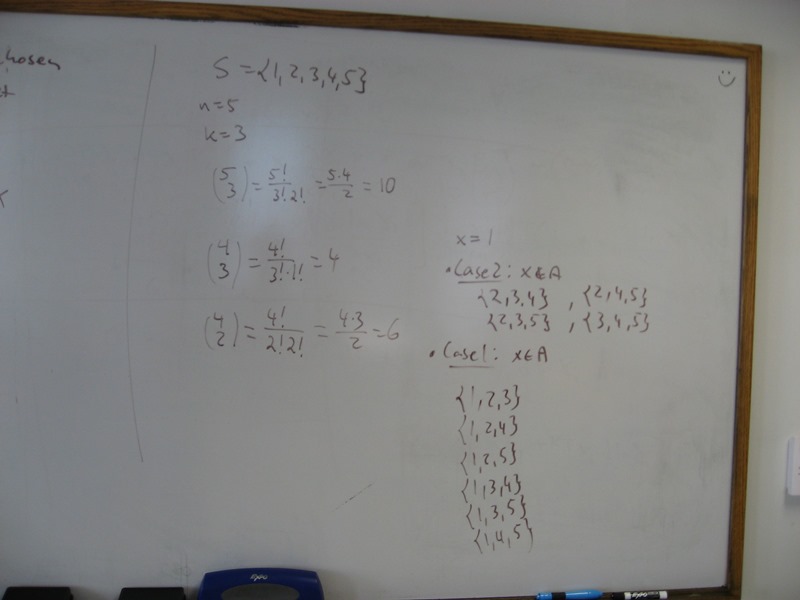 hosen
S = {1, 2, 3, 4, 5}
n = 5
k = 3
(5 3) = 5!/3!2! = 5·4/2 = 10
(4 3) = 4!/3!·1! = 4
(4 2) = 4!/2!2! = 4·3/2 = 6
x = 1
• Case 2: x∉A
{2,3,4} , {2,4,5}
{2,3,5} , {3,4,5}
• Case 1: x∈A
{1,2,3}
{1,2,4}
{1,2,5}
{1,3,4}
{1,3,5}
{1,4,5}
expo